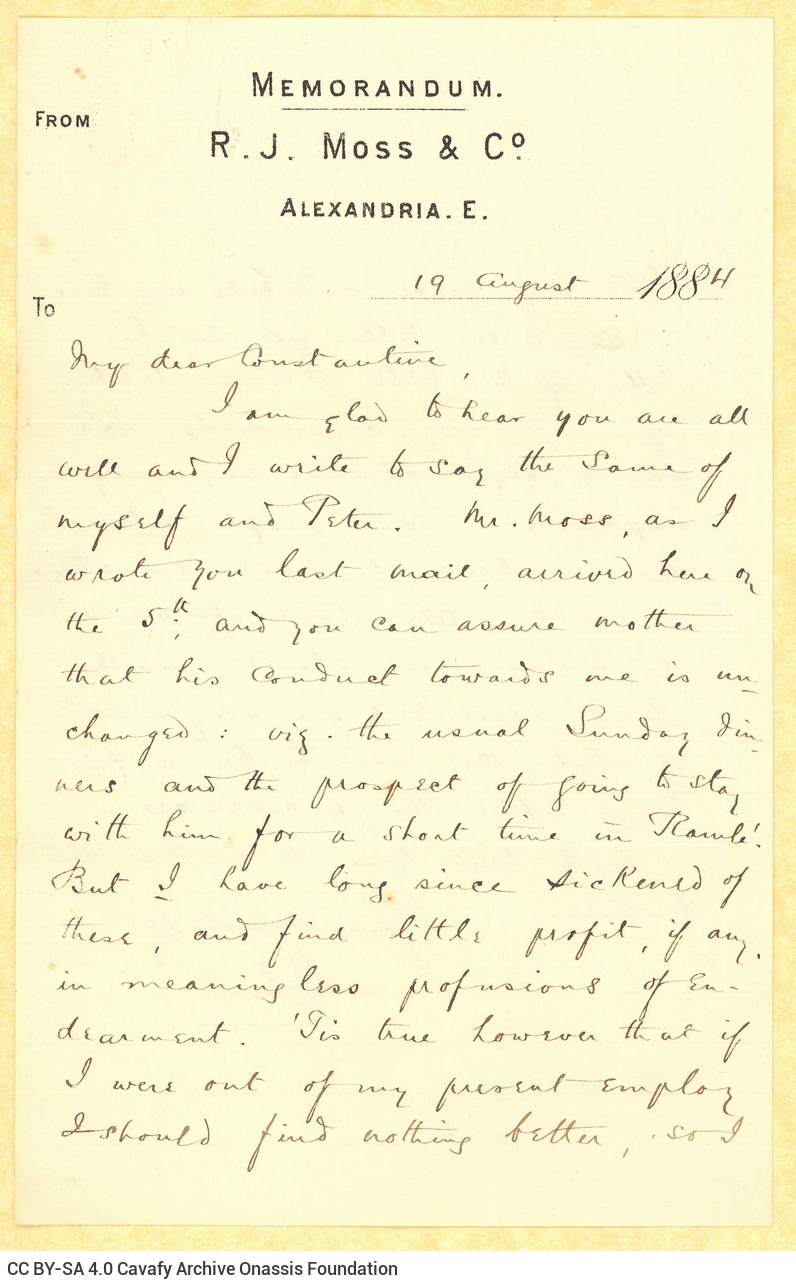 MEMORANDUM.
FROM
R. J. MOSS & Cº.
ALEXANDRIA. E.
19 August 1884
To
My dear Constantine,
I am glad to hear you are all
well and I write to say the same of
myself and Peter. Mr. Moss, as I
wrote you last mail, arrived here on
the 5th; and you can assure mother
that his conduct towards me is un-
changed: viz. the usual Sunday din-
ners and the prospect of going to stay
with him for a short time in Ramle'.
But I have long since sickened of
these, and find little profit, if any,
in meaningless profusions of en-
dearment. 'Tis true however that if
I were out of my present employ
I should find nothing better, so I
CC BY-SA 4.0 Cavafy Archive Onassis Foundation